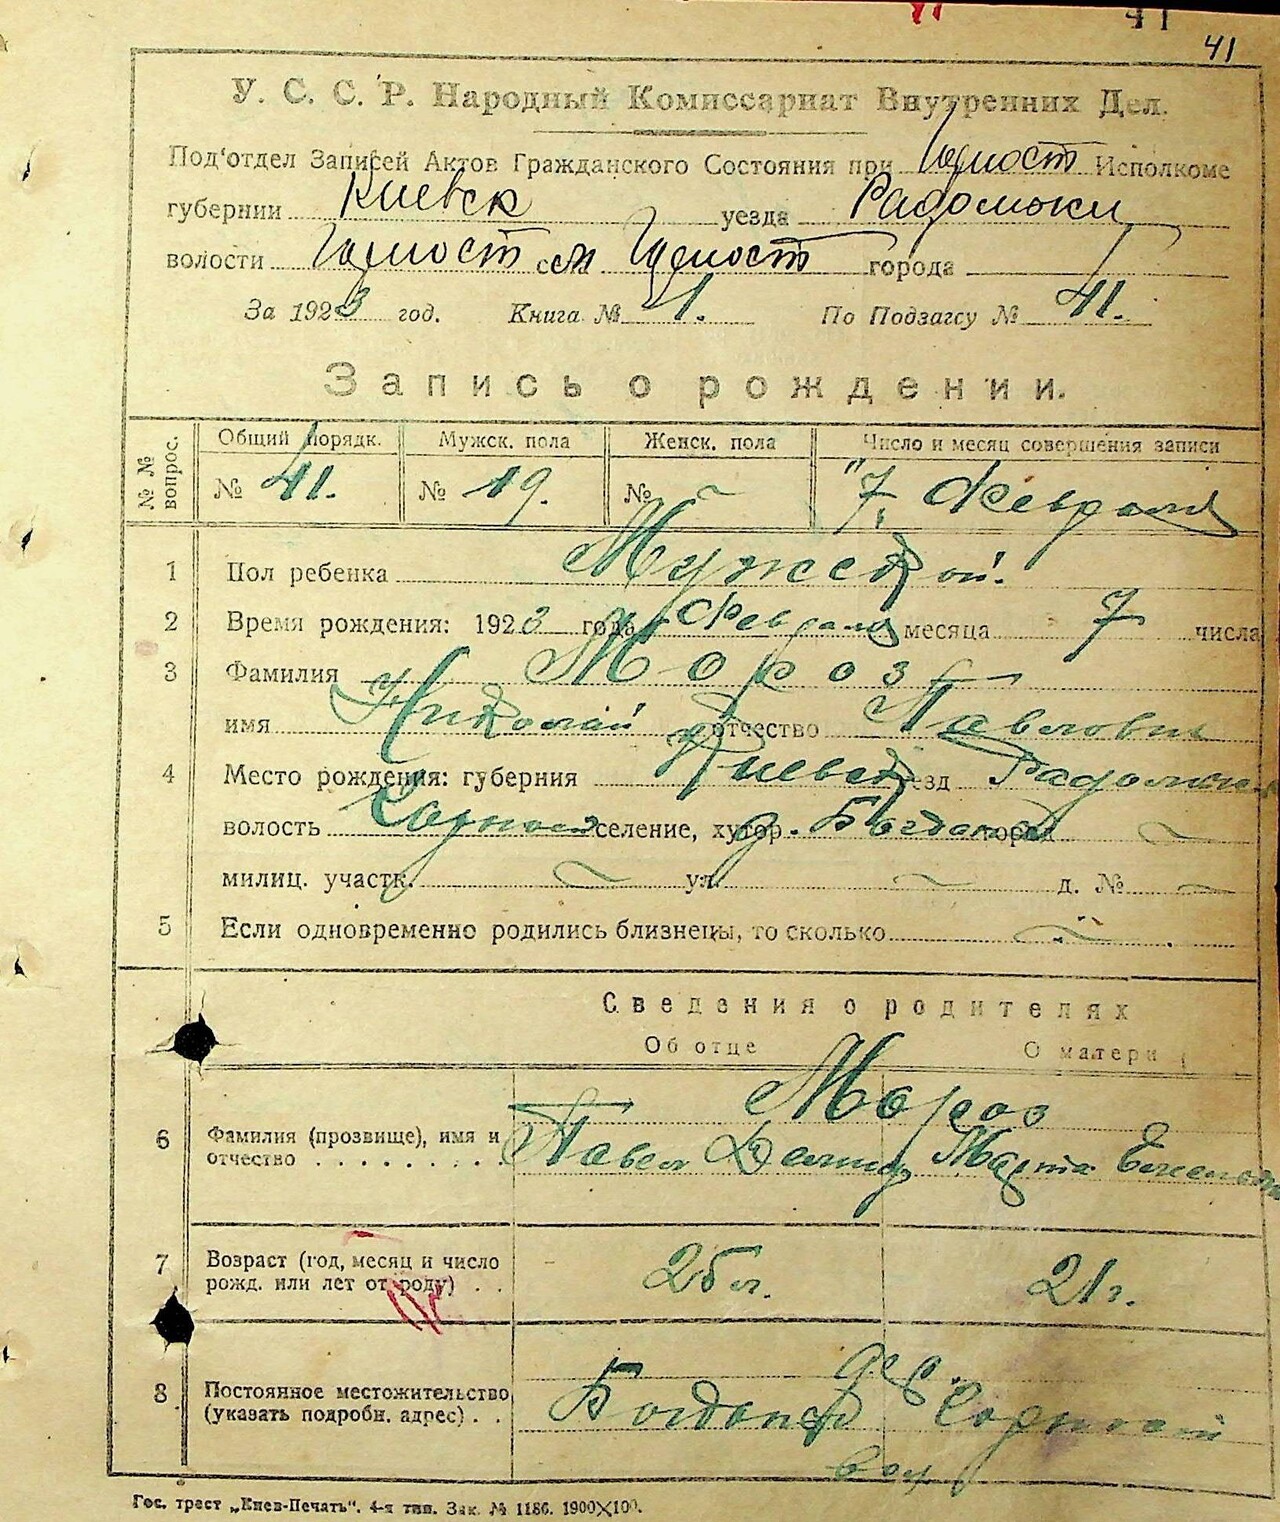 41
41
У. С. С. Р. Народный Комиссариат Внутренних Дел.
Под'отдел Записей Актов Гражданского Состояния при Исполкоме
губернии Киевск уезда Радомськи
волости города
За 1923 год. Книга № 1. По Подзагсу № 41.
Запись о рождении.
№ № вопрос. Общий порядк. Мужск. пола Женск. пола Число и месяц совершения записи
№ 41. № 19. № ~ "7, Февраля
1 Пол ребенка Мужской.
2 Время рождения: 1923 года Февраля месяца 7 числа
3 Фамилия Мороз
имя Николай отчество Павлович
4 Место рождения: губерния Киевск уезд
волость селение, хутор д. город ~
милиц. участк. ~ ул. ~ д. № ~
5 Если одновременно родились близнецы, то сколько ~
Сведения о родителях
Об отце О матери
Мороз
6 Фамилия (прозвище), имя и
отчество . . . . . . . . . Павел Марта
7 Возраст (год, месяц и число
рожд. или лет от роду) . . 25 л. 21 г.
дер.
8 Постоянное местожительство
(указать подробн. адрес) . .
вол.
Гос. трест „Киев-Печать". 4-я тип. Зак. № 1186. 1900×100.